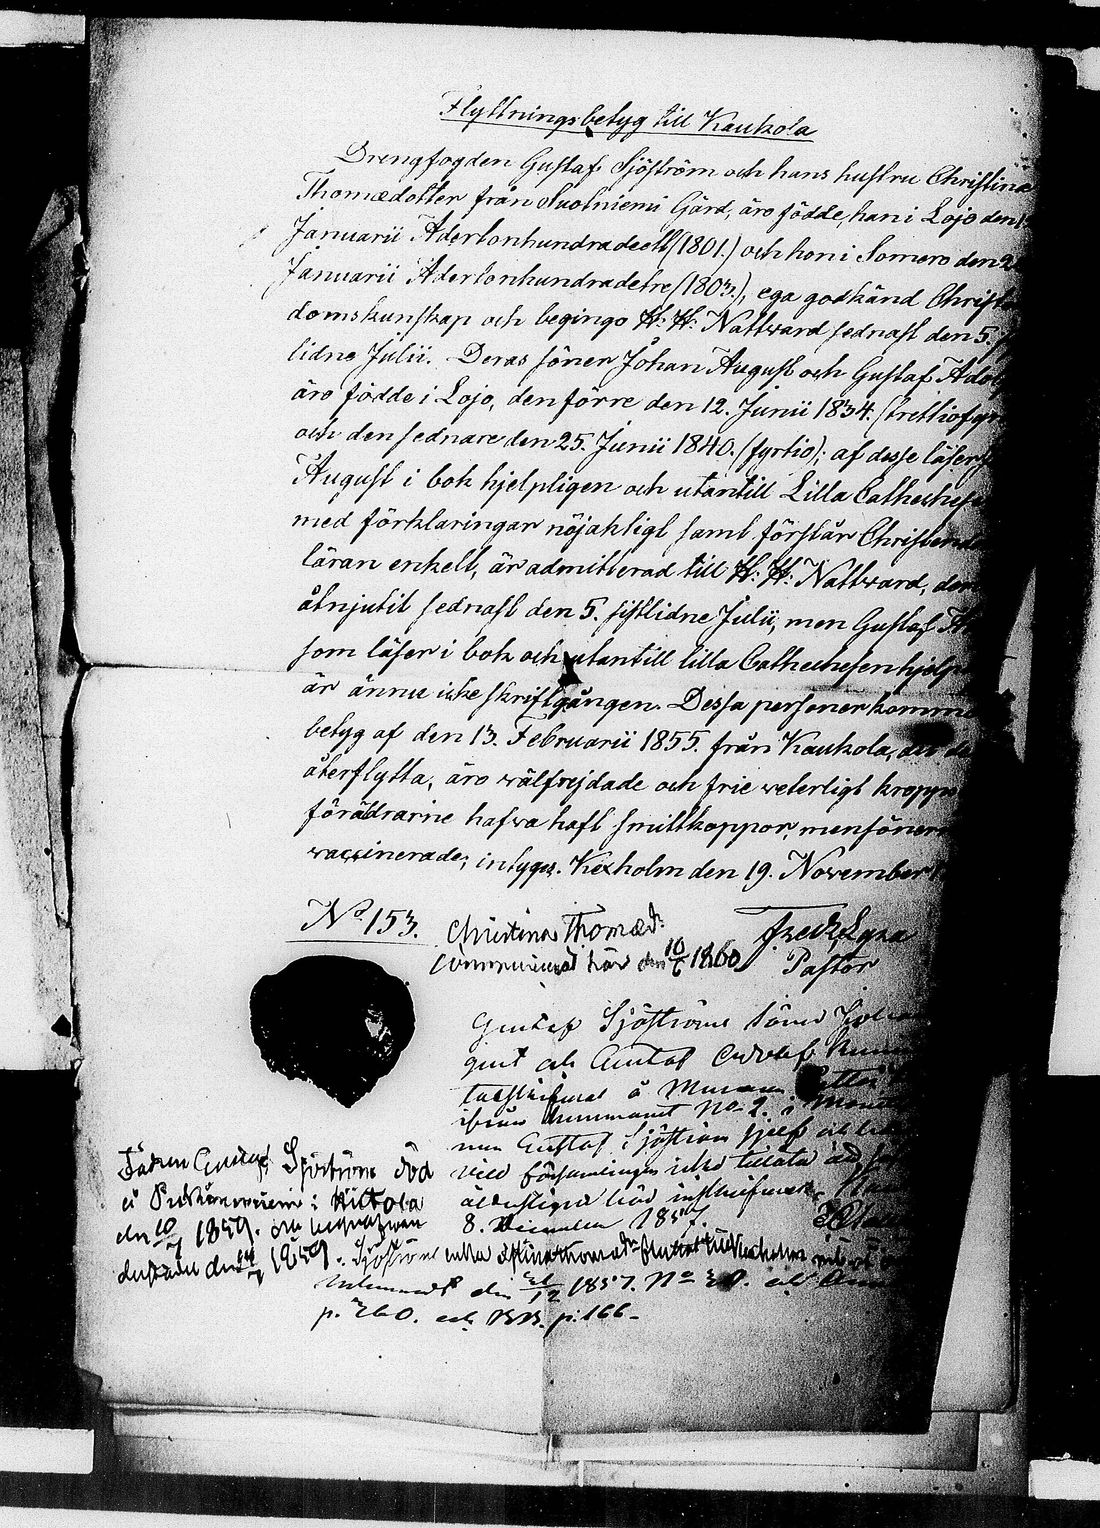 Flyttningsbetyg till Kaukola
Drengfogden Gustaf Sjöström och hans hustru Christina
Thomædotter från Suotniemi Gård, äro födde, han i Lojo den
Januarii Adertonhundradeett (1801.) och hon i Somero den 2
Januarii Adertonhundradetre (1803.), ega godkänd Christen
domskunskap och begingo H: H: Nattward sednast den 5.
lidne Julii. Deras söner Johan August och Gustaf Adol
äro födde i Lojo, den förre den 12. Junii 1834. (trettiofyra
och den sednare den 25. Junii 1840. (fyrtio); af desse läser
August i bok hjelpligen och utantill Lilla Catheches
med förklaringar nöjaktligt samt förstår Christendo
läran enkelt, är admitterad till H: H: Nattward, den
åtnjutit sednast den 5. sistlidne Julii, men Gustaf A
som läser i bok och utantill lilla Catechesen hjelp
är ännu icke skriftgången. Dessa personer komme
betyg af den 13. Februarii 1855. från Kaukola, dit de
återflytta, äro wälfrejdade och frie weterligt kropps
föräldrarne hafwa haft smittkoppor, men söner
waccinerade; intygar. Kexholm den 19. November
No. 153.
Christina Thomædr
communicerat här den 10/6 1860
Fredr. Lyra
Pastor
Gustaf Sjöströms söner Johan
gust och Gustaf Adolf kunna
inskrifwas å
No 2. i
men Gustaf Sjöström sjelf och
will församlingen icke tillåta att
här inskrifwas.
8. December 1857.
Fadren Gustaf Sjöström död
å i Hiitola
den 10/7 1859. och begrafwen
den 14/7 1859.
Sjöströms enka Christina Thomædr
den 26/12 1857. No
p. 260. och p. 166.